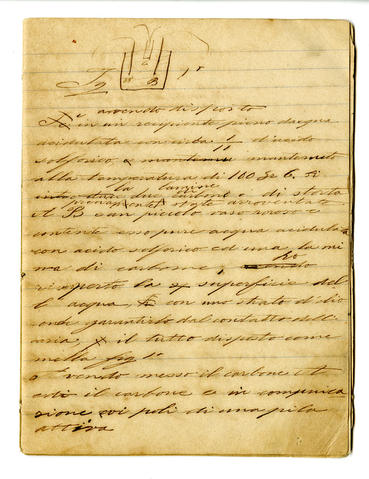 Fig B 1ª
avendo disposto
A è in un recipiente pieno d'acqua
acidulata con circa 1/10 d'acido
solforico, e mantenuto mantenuto
alla temperatura di 100
introdurre due carbone o di storta
la lamine di
previamente arroventato
et B e un piccolo vaso poroso e
contente esso pure acqua acidula
con acido solforico ed una lami
na di carbone,
ricoperto la superficie del
l'acqua, con uno strato d'olio
onde garantirlo dal contatto dell'
aria, il tutto disposto come
nella fig 1ª
avendo messo il carbone
il carbone e in comunica
zione coi poli di una pila
attiva